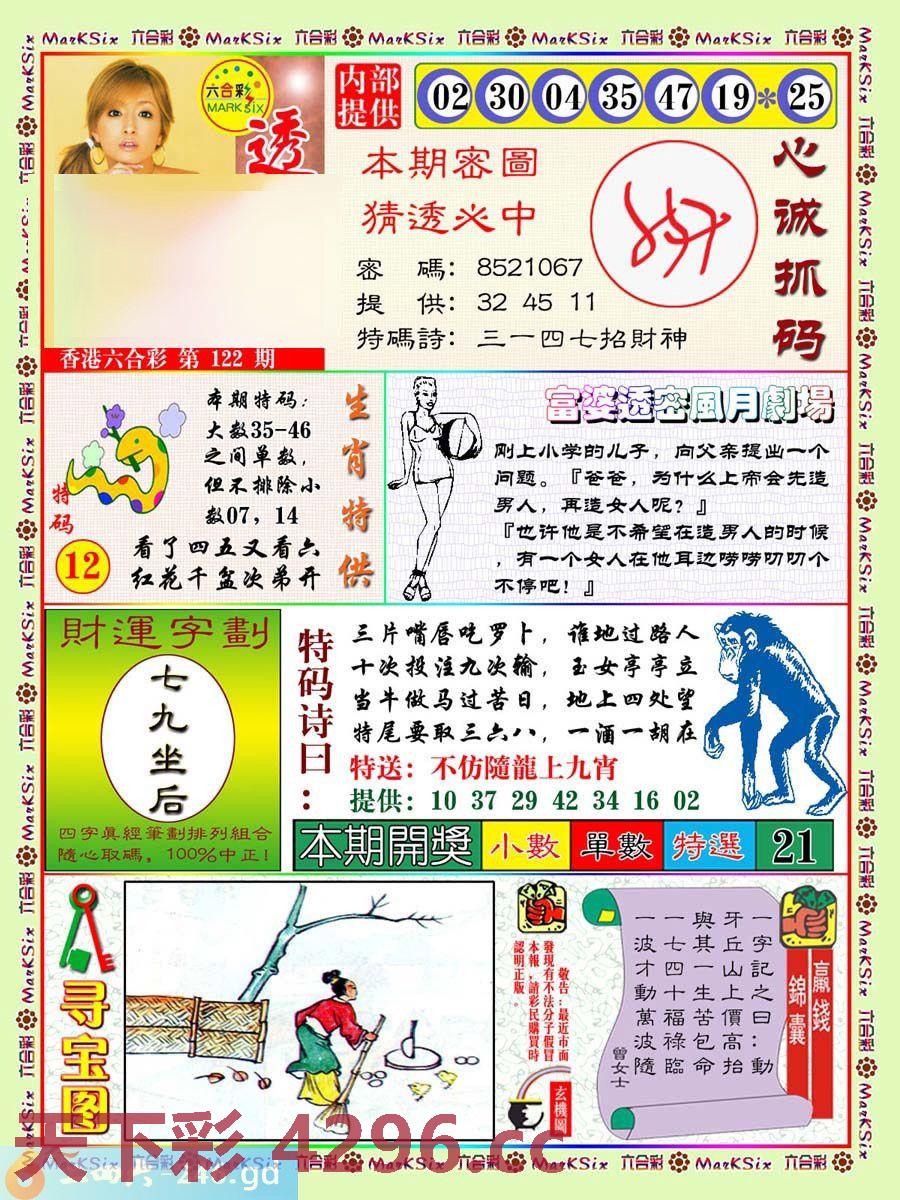 MarKSix 六合彩 MarKSix 六合彩 MarKSix 六合彩 MarKSix 六合彩 MarKSix 六合彩
六合彩
MARK SIX
透
香港六合彩 第 122 期
内部
提供
02 30 04 35 47 19 * 25
本期密圖
猜透必中
密 碼: 8521067
提 供: 32 45 11
特碼詩: 三一四七招財神
心诚抓码
特码
12
本期特码:
大数35-46
之间单数,
但不排除小
数07, 14
看了四五又看六
红花千盆次弟开
生肖特供
富婆透密風月劇場
刚上小学的儿子, 向父亲提出一个
问题。『爸爸, 为什么上帝会先造
男人, 再造女人呢? 』
『也许他是不希望在造男人的时候
, 有一个女人在他耳边唠唠叨叨个
不停吧! 』
財運字劃
七九坐后
四字真經筆劃排列組合
隨心取碼, 100%中正!
特码诗曰:
三片嘴唇吃罗卜, 谁地过路人
十次投注九次输, 玉女亭亭立
当牛做马过苦日, 地上四处望
特尾要取三六八, 一酒一胡在
特送: 不仿隨龍上九宵
提供: 10 37 29 42 34 16 02
本期開獎 小數 單數 特選 21
寻宝图
敬告:最近市面
發現有不法分子假冒
本報,請彩民購買時
認明正版。
玄機圖
一字記之曰:動
牙丘山上價高抬
與其一生苦包命
一七四十福祿臨
一波才動萬波隨
曾女士
贏錢
錦囊
天下彩 4296.cc
MarKSix 六合彩 MarKSix 六合彩 MarKSix 六合彩 MarKSix 六合彩 MarKSix 六合彩